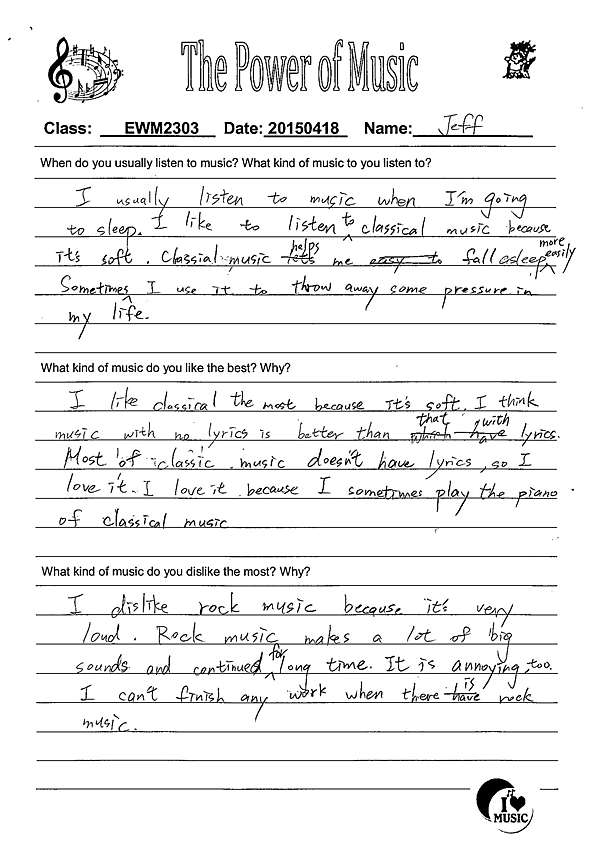 The Power of Music
Class: EWM2303 Date: 20150418 Name: Jeff
When do you usually listen to music? What kind of music to you listen to?
I usually listen to music when I'm going
to sleep. I like to listen to classical music because
it's soft. Classial music helps me easy to fall asleep more easily
Sometimes I use it to throw away some pressure in
my life.
What kind of music do you like the best? Why?
I like classical the most because it's soft. I think
music with no lyrics is better than that with which have lyrics.
Most of classic music doesn't have lyrics, so I
love it. I love it because I sometimes play the piano
of classical music
What kind of music do you dislike the most? Why?
I dislike rock music because it's very
loud. Rock music makes a lot of big
sounds and continued for long time. It is annoying, too.
I can't finish any work when there is have rock
music.
I MUSIC